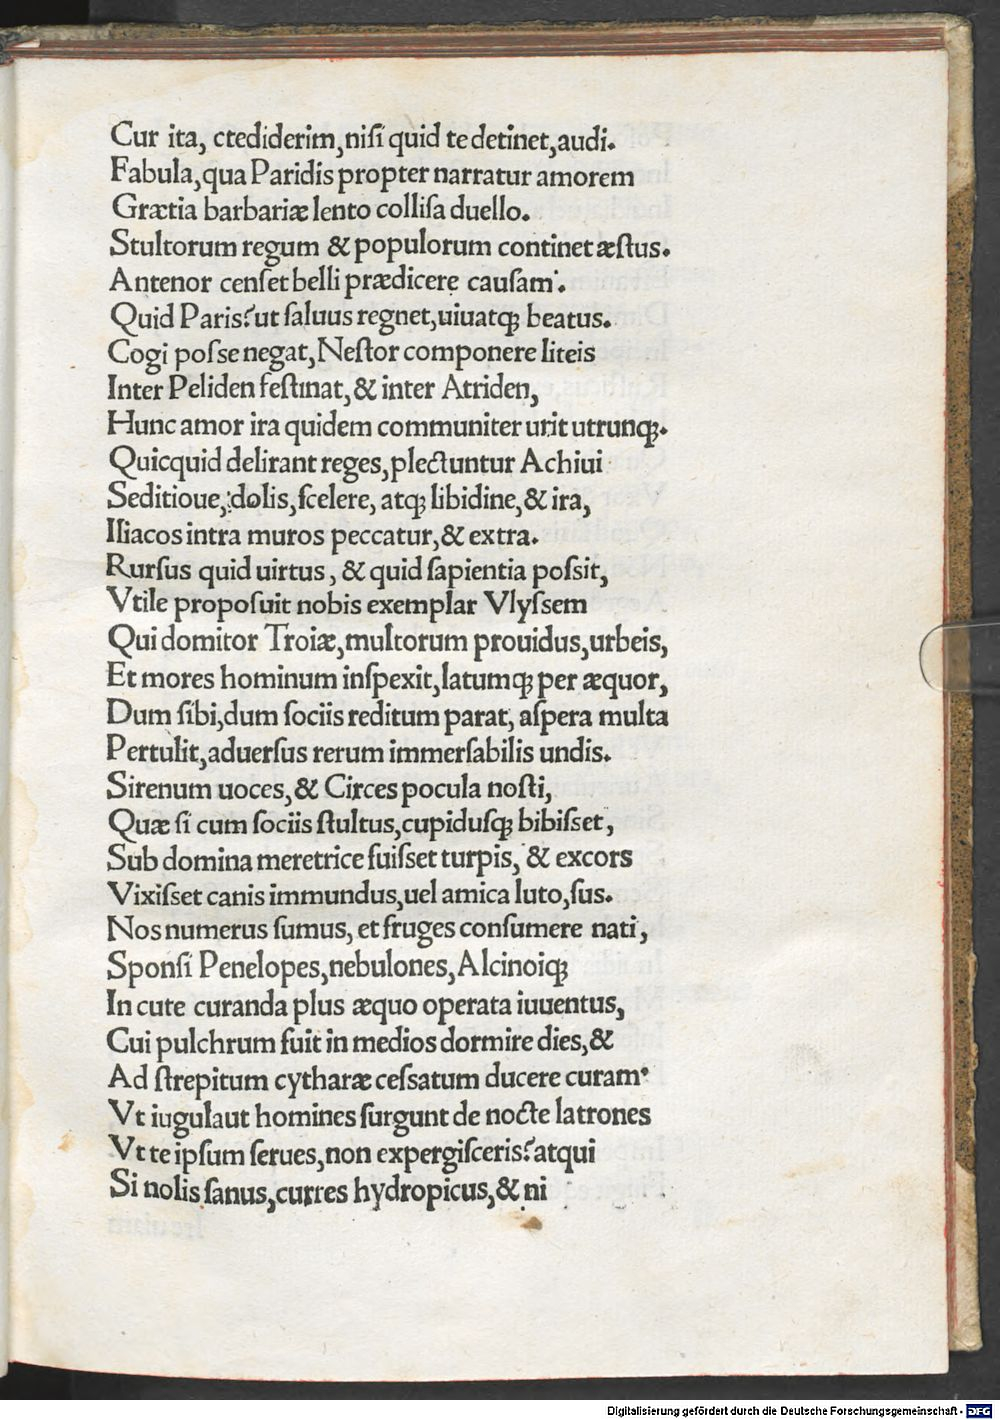 Cur ita, ctediderim,niſi quid te detinet,audi.
Fabula,qua Paridis propter narratur amorem
Grætia barbariæ lento colliſa duello.
Stultorum regum & populorum continet æſtus.
Antenor cenſet belli prædicere cauſam.
Quid Paris?ut ſaluus regnet,uiuatqꝫ beatus.
Cogi poſse negat,Neſtor componere liteis
Inter Peliden feſtinat,& inter Atriden,
Hunc amor ira quidem communiter urit utrunqꝫ.
Quicquid delirant reges,plectuntur Achiui
Seditioue,:dolis,ſcelere, atqꝫ libidine,& ira,
Iliacos intra muros peccatur,& extra.
Rurſus quid uirtus, & quid ſapientia poſsit,
Vtile propoſuit nobis exemplar Vlyſsem
Qui domitor Troiæ,multorum prouidus,urbeis,
Et mores hominum inſpexit,latumqꝫ per æquor,
Dum ſibi,dum ſociis reditum parat, aſpera multa
Pertulit,aduerſus rerum immerſabilis undis.
Sirenum uoces,& Circes pocula noſti,
Quæ ſi cum ſociis ſtultus,cupiduſqꝫ bibiſset,
Sub domina meretrice fuiſset turpis, & excors
Vixiſset canis immundus,uel amica luto,ſus.
Nos numerus ſumus, et fruges conſumere nati,
Sponſi Penelopes,nebulones,Alcinoiqꝫ
In cute curanda plus æquo operata iuuentus,
Cui pulchrum fuit in medios dormire dies,&
Ad ſtrepitum cytharæ ceſsatum ducere curam.
Vt iugulaut homines ſurgunt de nocte latrones
Vt te ipſum ſerues,non expergiſceris?atqui
Si nolis ſanus,curres hydropicus,& ni
Digitalisierung gefördert durch die Deutsche Forschungsgemeinschaft - DFG